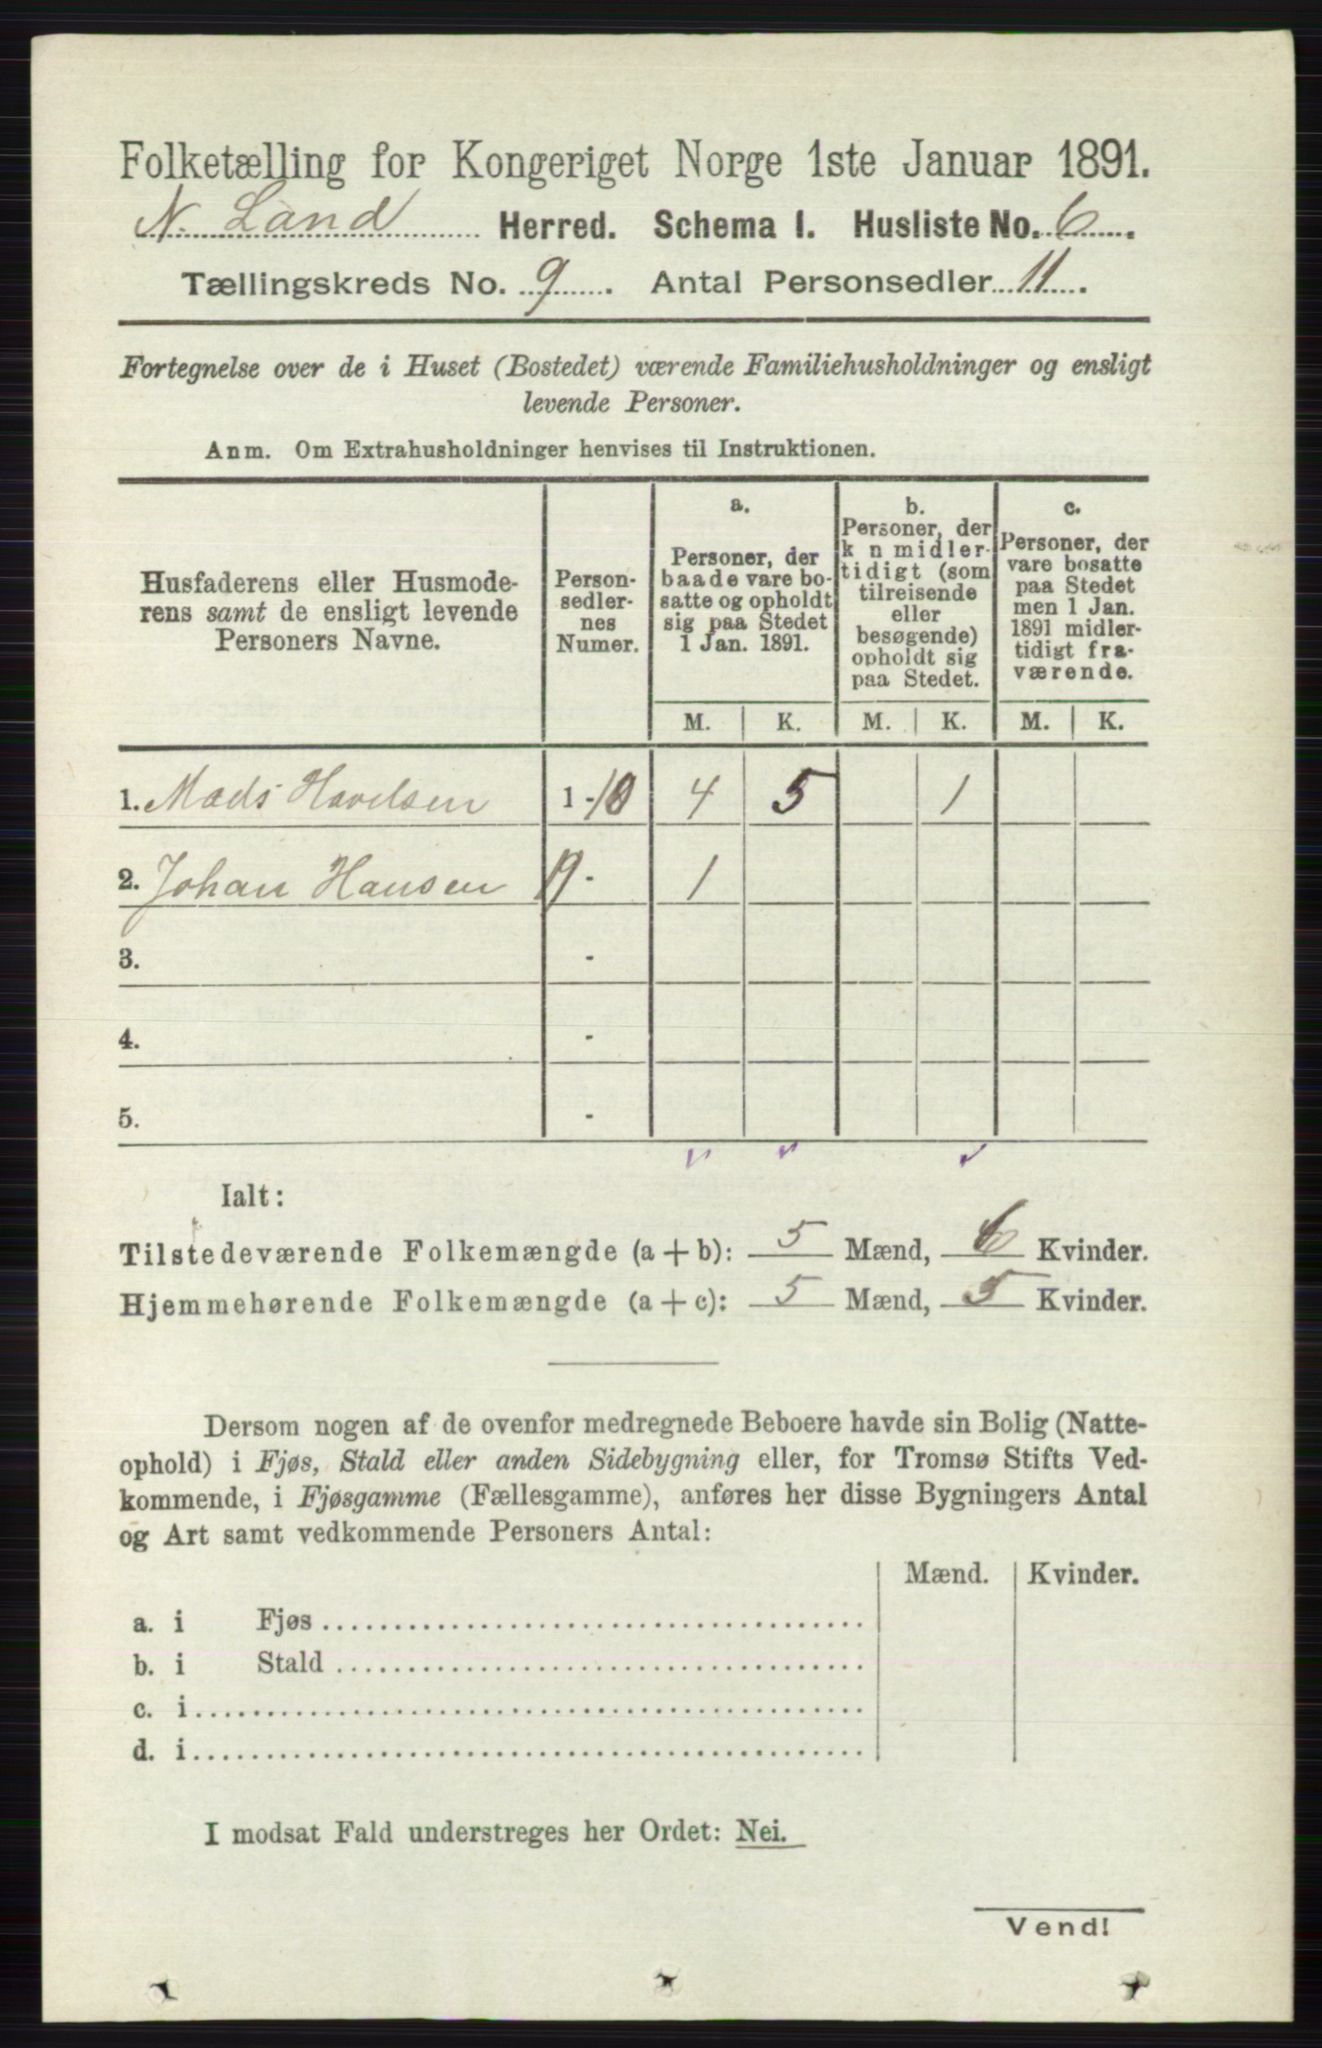 Folketælling for Kongeriget Norge 1ste Januar 1891.
N. Land Herred. Schema I. Husliste No. 6.
Tællingskreds No. 9. Antal Personsedler 11.
Fortegnelse over de i Huset (Bostedet) værende Familiehusholdninger og ensligt
levende Personer.
Anm. Om Extrahusholdninger henvises til Instruktionen.
Husfaderens eller Husmode-
rens samt de ensligt levende
Personers Navne.
Person-
sedler-
nes
Numer.
a.
Personer, der
baade vare bo-
satte og opholdt
sig paa Stedet
1 Jan. 1891.
b.
Personer, der
k n midler-
tidigt (som
tilreisende
eller
besøgende)
opholdt sig
paa Stedet.
c.
Personer, der
vare bosatte
paa Stedet
men 1 Jan.
1891 midler-
tidigt fra-
værende.
M. K. M. K. M. K.
1. Mads Havelsen 1-10 4 5 1
2. Johan Hansen 11 - 1
3. -
4. -
5. -
Ialt:
Tilstedeværende Folkemængde (a + b): 5 Mænd, 6 Kvinder.
Hjemmehørende Folkemængde (a + c): 5 Mænd, 5 Kvinder.
Dersom nogen af de ovenfor medregnede Beboere havde sin Bolig (Natte-
ophold) i Fjøs, Stald eller anden Sidebygning eller, for Tromsø Stifts Ved-
kommende, i Fjøsgamme (Fællesgamme), anføres her disse Bygningers Antal
og Art samt vedkommende Personers Antal:
Mænd. Kvinder.
a. i Fjøs
b. i Stald
c. i
d. i
I modsat Fald understreges her Ordet: Nei.
Vend!